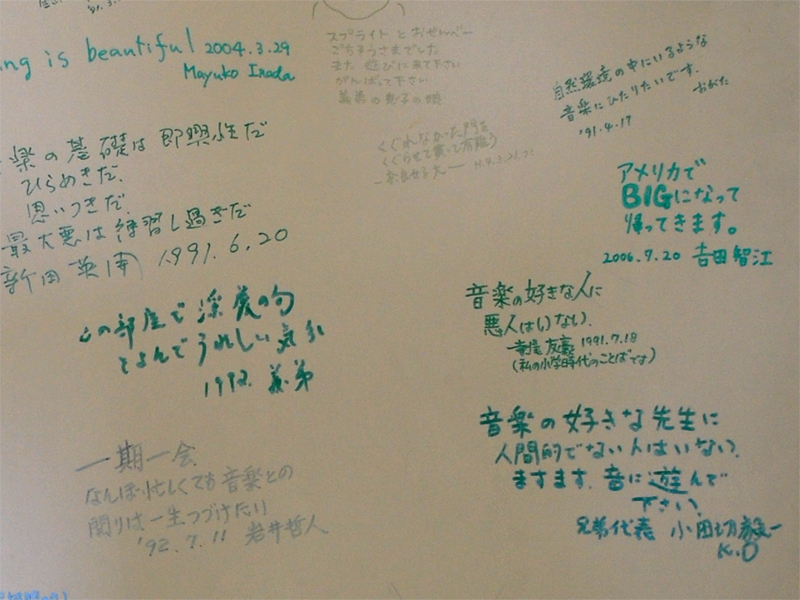 ng is beautiful 2004.3.29
Mayuko
スプライト と おせんべー
ごちそうさまでした
また 遊びに来て下さい
がんばって下さい
義弟の息子の娘
自然環境の中にいるような
音楽にひたりたいです。
おがた
'91.4.17
くぐれなかった門を
くぐらせて貰って有難う
楽の基礎は即興性だ
ひらめきだ、
思いつきだ、
最大悪は練習し過ぎだ
1991.6.20
アメリカで
BIGになって
帰ってきます。
2006.7.20 吉田智江
音楽の好きな人に
悪人はいない、
友 1991.7.18
(私の小学時代のことばです)
この部屋で 深 の句
とよんで うれしい 気
1992. 義弟
音楽の好きな先生に
人間的でない人はいない、
ますます、音に遊んで
下さい、
兄弟代表 小田切毅一
K.O
一期一会
なんぼ忙しくても音楽との
関りは一生つづけたい
'92.7.11 岩井哲人